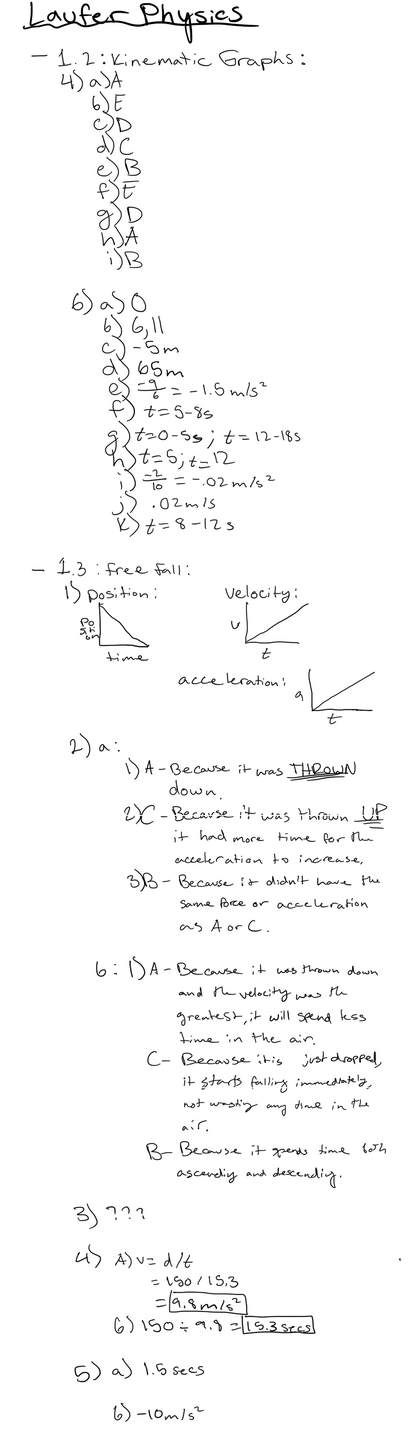 Laufer Physics
- 1.2: Kinematic Graphs:
4) a) A
b) E
c) D
d) C
e) B
f) E
g) D
h) A
i) B
6) a) 0
b) 6, 11
c) -5m
d) 65m
e) -9/6 = -1.5 m/s²
f) t=5-8s
g) t=0-5s; t=12-18s
h) t=5; t=12
i) -2/10 = -.02 m/s²
j) .02m/s
k) t=8-12s
- 1.3: free fall:
1) Position: Velocity:
Position
time
v
t
acceleration:
a
t
2) a:
1) A - Because it was THROWN
down.
2) C - Because it was thrown UP
it had more time for the
acceleration to increase.
3) B - Because it didn't have the
same force or acceleration
as A or C.
b: 1) A - Because it was thrown down
and the velocity was the
greatest, it will spend less
time in the air.
C - Because it is just dropped,
it starts falling immediately,
not wasting any time in the
air.
B - Because it spends time both
ascending and descending.
3) ???
4) A) v = d/t
= 150 / 15.3
= 9.8 m/s²
b) 150 ÷ 9.8 = 15.3 secs
5) a) 1.5 secs
b) -10m/s²